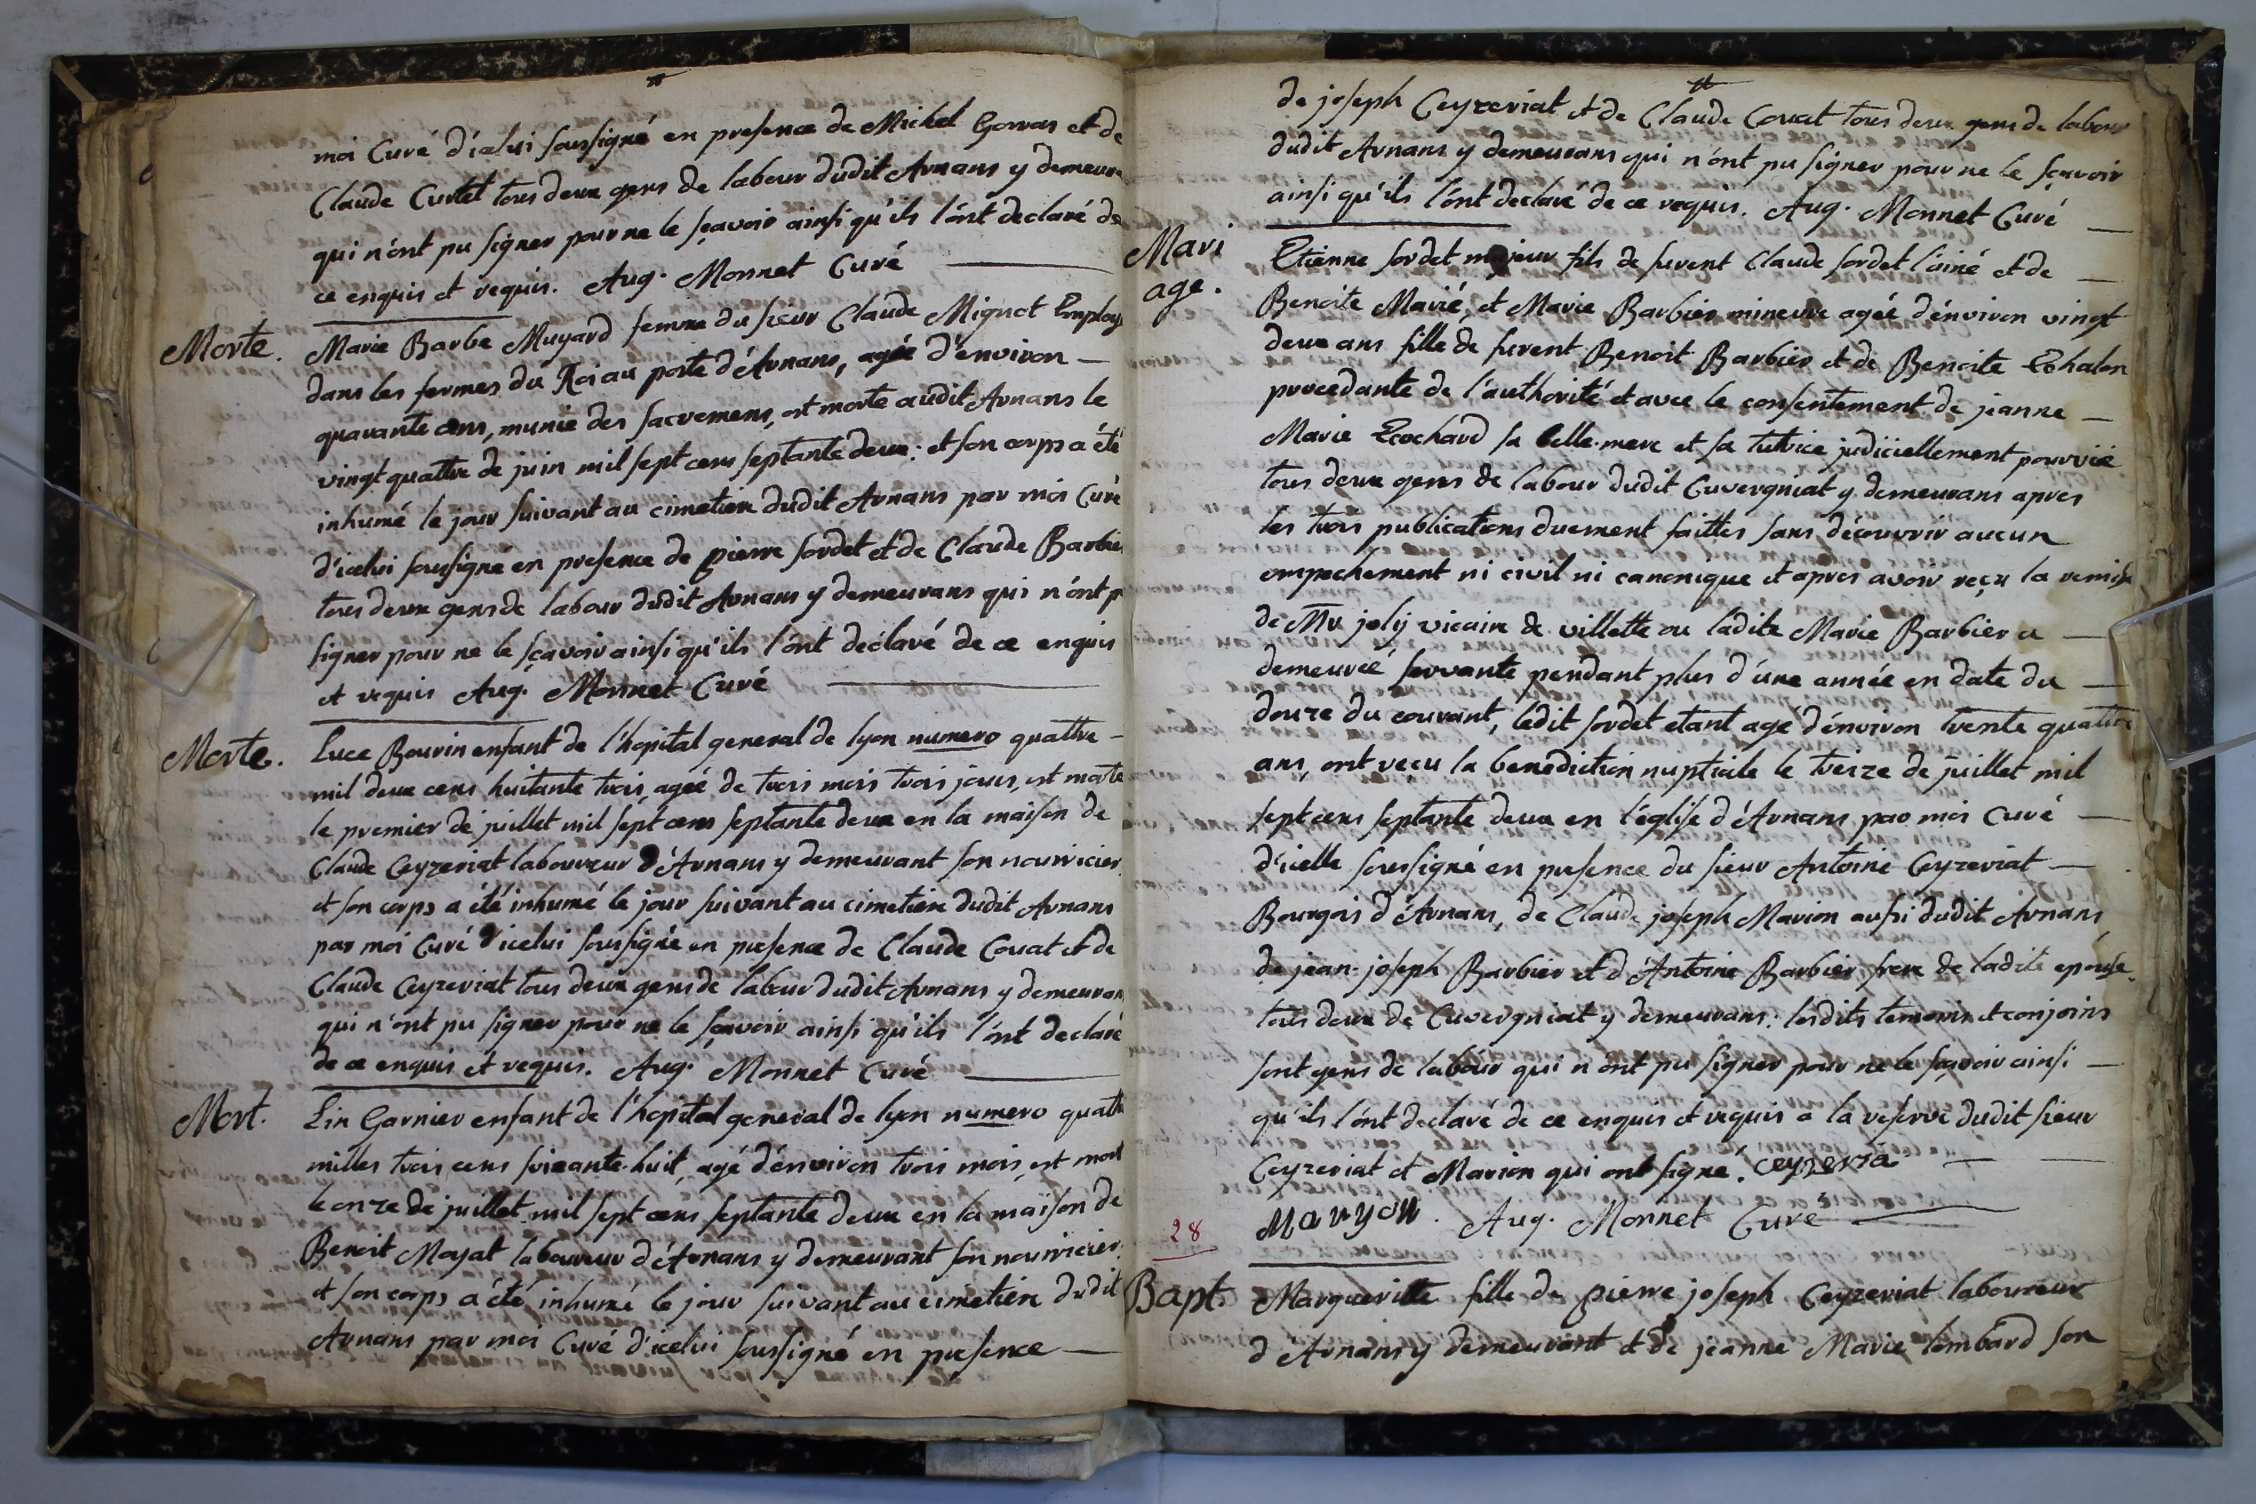 moi Curé d'icelui soussigné en presence de Michel Gorvas et de
Claude Curtet tous deux gens de labour dudit Arnans y demeura
qui n'ónt pu signer pour ne le sçavoir ainsi qu'ils l'ónt declaré de
ce enquis et requis. Aug. Monnet Curé
Morte. Marie Barbe Muyard femme du sieur Claude Mignot Employ
dans les fermes du Roi au poste d'Arnans, agée d'environ
quarante ans, munie des sacremens, est morte audit Arnans le
vingt quattre de juin mil sept cens septante deux: et son corps a été
inhumé le jour suivant au cimetiere dudit Arnans par moi Curé
d'icelui soussigné en presence de pierre sordet et de Claude Barbier
tous deux gens de labour dudit Arnans y demeurans qui n'ónt p
signer pour ne le sçavoir ainsi qu'ils l'ónt declaré de ce enquis
et requis Aug. Monnet Curé
Morte. Luce Bourin enfant de l'hopital general de lyon numero quattre
mil deux cens huitante trois, agée de trois mois trois jours, est morte
le premier de juillet mil sept cens septante deux en la maison de
Claude Ceyzeriat laboureur d'Arnans y demeurant son nourricier
et son corps a été inhumé le jour suivant au cimetiere dudit Arnans
par moi Curé d'icelui soussigné en presence de Claude Couat et de
Claude Ceyzeriat tous deux gens de labour dudit Arnans y demeuran
qui n'ónt pu signer pour ne le sçavoir ainsi qu'ils l'ónt declaré
de ce enquis et requis. Aug. Monnet Curé
Mort. Lin Garnier enfant de l'hopital general de lyon numero quattr
milles trois cens soixante-huit, agé d'énviron trois mois, est mort
le onze de juillet mil sept cens septante deux en la maison de
Benoit Moyat laboureur d'Arnans y demeurant son nourricier,
et son corps a été inhumé le jour suivant au cimetiere dudit
Arnans par moi Curé d'icelui soussigné en presence
de joseph Ceyzeriat et de Claude Couat tous deux gens de labour
dudit Arnans y demeurans qui n'ónt pu signer pour ne le sçavoir
ainsi qu'ils l'ónt declaré de ce requis. Aug. Monnet Curé
Mari
age.
Etienne sordet majeur fils de furent Claude sordet l'ainé et de
Benoite Marié, et Marie Barbier mineure agée d'énviron vingt
deux ans fille de furent Benoit Barbier et de Benoite Echalon
procedante de l'authorité et avec le consentement de jeanne
Marie Ecochard sa belle-mere et sa tutrice judiciellement pourvüe
tous deux gens de labour dudit Cuvergniat y demeurans apres
les trois publications duement faittes sans découvrir aucun
empechement ni civil ni canonique et apres avoir reçu la remise
de Mr. joly vicaire de villette ou ladite Marie Barbier a
demeurée servante pendant plus d'une année en date du
douze du courant, ledit sordet etant agé d'énviron trente quattre
ans, ont reçu la benediction nuptiale le treize de juillet mil
sept cens septante deux en l'église d'Arnans par moi Curé
d'icelle soussigné en presence du sieur Antoine Ceyzeriat
Bourgois d'Arnans, de Claude joseph Marion aussi dudit Arnans,
de jean-joseph Barbier et d'Antoine Barbier frere de ladite epouse
tous deux de Cuvergniat y demeurans: lesdits temoins et conjoins
sont gens de labour qui n'ónt pu signer pour ne le sçavoir ainsi
qu'ils l'ónt declaré de ce enquis et requis a la reserve dudit sieur
Ceyzeriat et Marion qui ont signé. ceyzeria
Maryon. Aug. Monnet Curé
28
Bapt. Margueritte fille de pierre joseph Ceyzeriat laboureur
d'Arnans y demeurant et de jeanne Marie lombard son